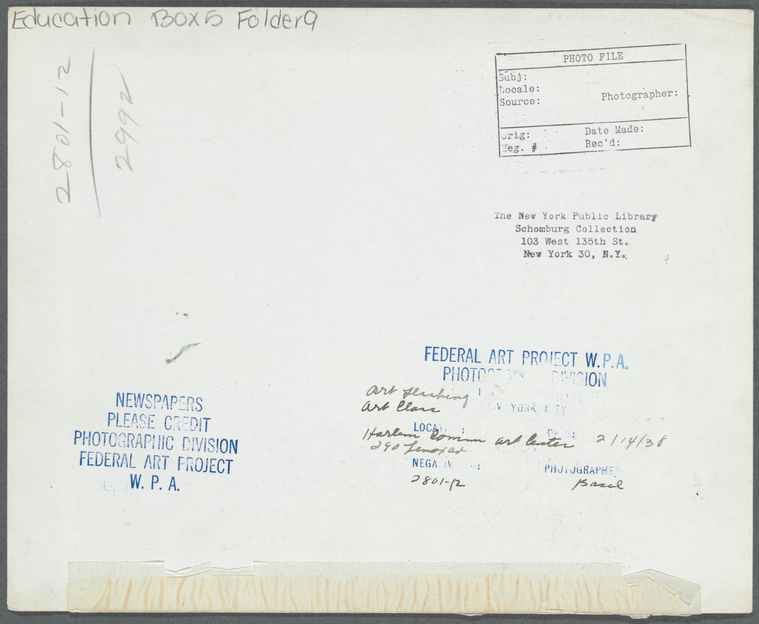 Education Box 5 Folder 9
2801-12
2992
PHOTO FILE
Subj:
Locale:
Source: Photographer:
Orig: Date Made:
Neg. # Rec'd:
The New York Public Library
Schomburg Collection
103 West 135th St.
New York 30, N.Y.
NEWSPAPERS
PLEASE CREDIT
PHOTOGRAPHIC DIVISION
FEDERAL ART PROJECT
W. P. A.
FEDERAL ART PROJECT W.P.A.
PHOTOGRAPHIC DIVISION
Art Teaching
NEW YORK CITY
Art Class
LOCATION: DATE:
Harlem Comm Art Center 2/14/38
290 Lenox av
NEGATIVE: PHOTOGRAPHER
2801-12 Basil